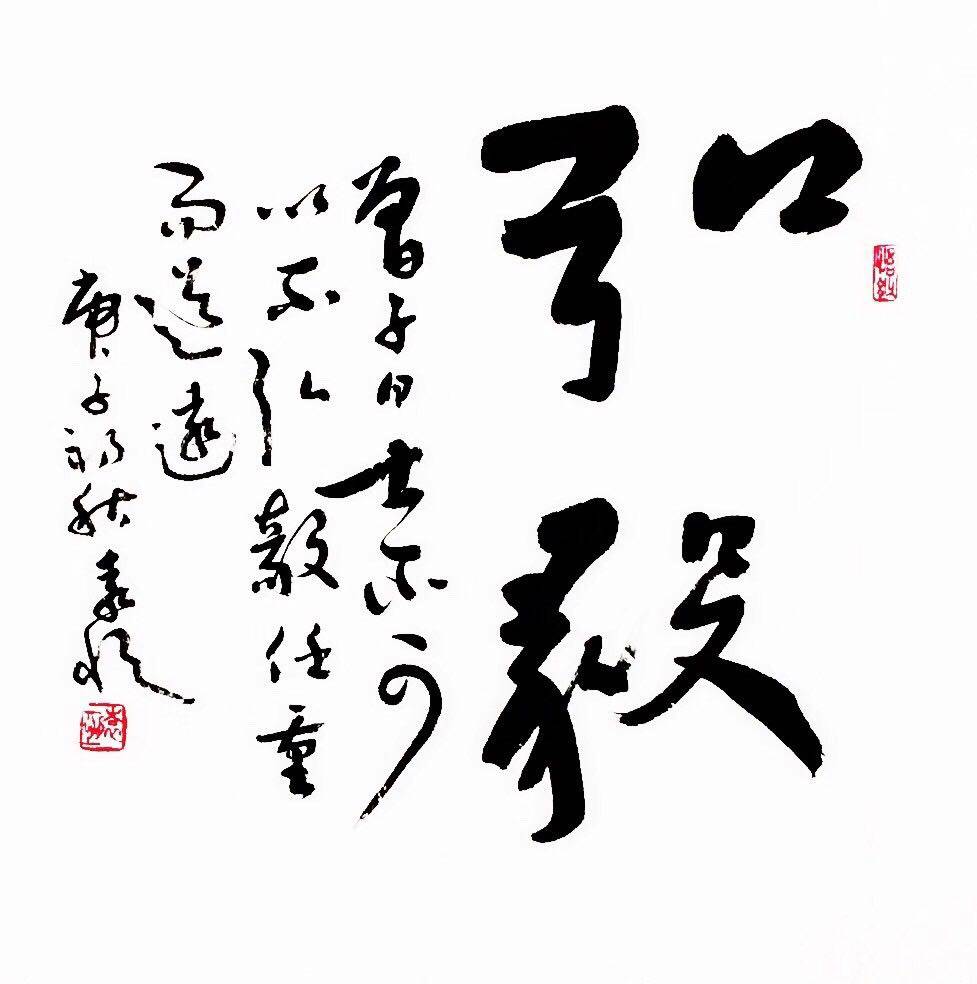 弘毅
曾子曰士不可
以不弘毅任重
而道远
庚子初秋袁